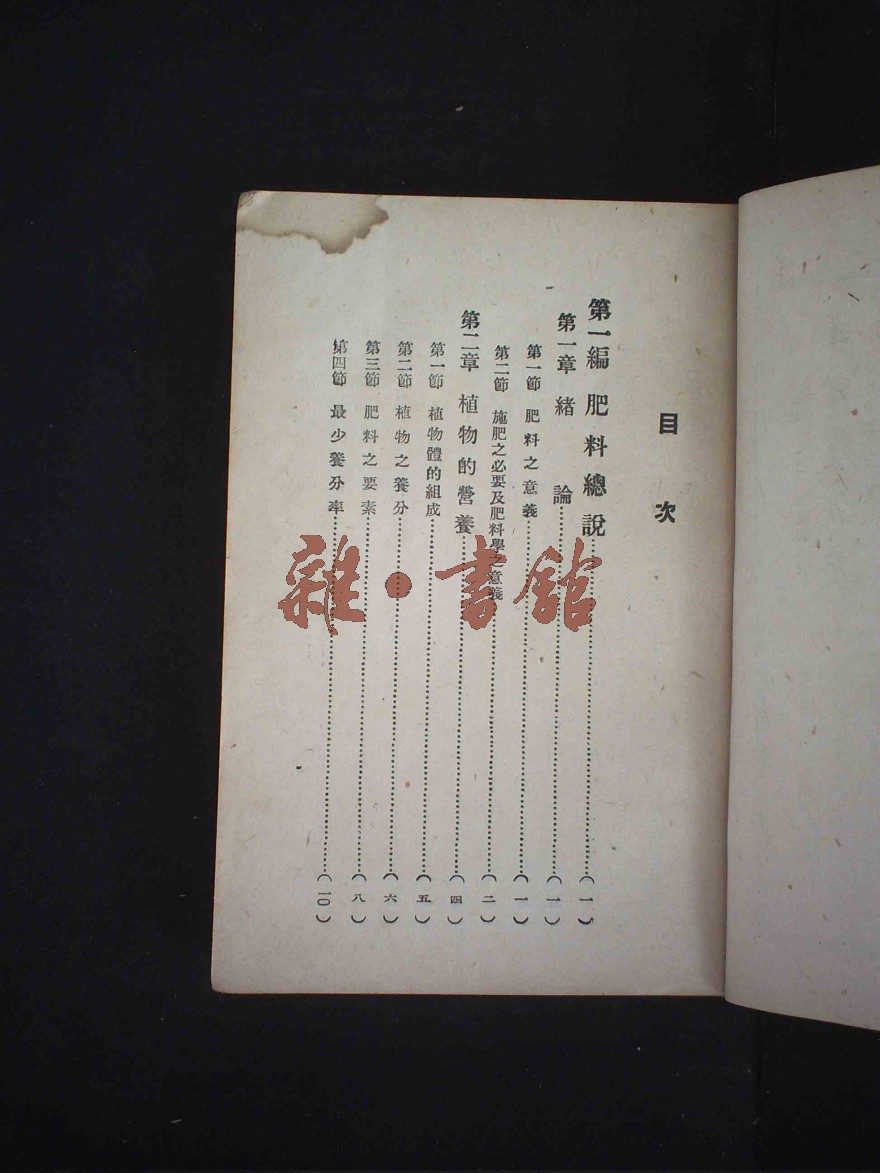 目次
第一編 肥料總說……（一）
第一章 緒論……（一）
第一節 肥料之意義……（一）
第二節 施肥之必要及肥料學之意義……（二）
第二章 植物的營養……（四）
第一節 植物體的組成……（五）
第二節 植物之養分……（六）
第三節 肥料之要素……（八）
第四節 最少養分率……（一〇）
雜·書館